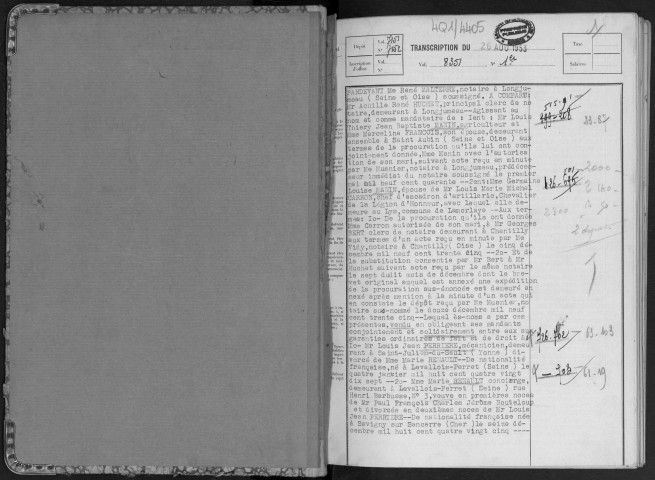 4Q1/4405
Dépôt
Vol. 7153
N° 7162
Inscription d'office
Vol.
N°
TRANSCRIPTION DU 26 AOU 1953
Vol. 8351 N° 1
Taxe
Salaires
PARDEVANT Me René MALTERRE, notaire à Longju-
meau ( Seine et Oise ) soussigné. A COMPARU:
Mr Achille René HUCHET, principal clerc de no
taire, demeurant à Longjumeau--Agissant au
nom et comme mandataire de : Ient : Mr Louis
Thiery Jean Baptiste MANIN, agriculteur et
Mme Marceline FRANCOIS, son épouse, demeurant
ensemble à Saint Aubin ( Seine et Oise ) aux
termes de la procuration qu'ils lui ont con-
jointement donnée, Mme Manin avec l'autorisa
tion de son mari, suivant acte reçu en minute
par Me Musnier, notaire à Longjumeau, prédéces-
seur immédiat du notaire soussigné le premier
mai mil neuf cent quarante --2ent: Mme Germaine
Louise MANIN, épouse de Mr Louis Marie Michel
CARRON, Chef d'escadron d'artillerie, Chevalier
de la Légion d'Honneur, avec lequel elle de-
meure au Lys, commune de Lamorlaye --Aux ter-
mes: Io- De la procuration qu'ils ont donnée
Mme Carron autorisée de son mari, à Mr Georges
BERT clerc de notaire demeurant à Chantilly
aux termes d'un acte reçu en minute par Me
Vidy, notaire à Chantilly( Oise ) le cinq dé-
cembre mil neuf cent trente cinq --2o- Et de
la substitution consentie par Mr Bert à Mr
Huchet suivant acte reçu par le même notaire
le sept dudit mois de décembre dont le bre-
vet original auquel est annexé une expédition
de la procuration sus-énoncée est demeuré an
nexé après mention à la minute d'un acte qui
en constate le dépôt reçu par Me Musnier, no
taire sus-nommé le douze décembre mil neuf
cent trente cinq--Lequel ès-noms a par ces
présentes, vendu en obligeant ses mandants
conjointement et solidairement entre eux aux
garanties ordinaires de fait et de droit à:
Io- Mr Louis Jean PERRIERE, mécanicien, demeu
rant à Saint-Julien-du-Sault ( Yonne ) di-
vorcé de Mme Marie REGAULT--De nationalité
française, né à Levallois-Perret (Seine ) le
quatre janvier mil huit cent quatre vingt
dix sept --2o- Mme Marie REGAULT concierge,
demeurant à Levallois-Perret ( Seine ) rue
Henri Barbusse, N° 3, veuve en premières noces
de Mr Paul François Charles Jérôme Bouteloup
et divorcée en deuxièmes noces de Mr Louis
Jean PERRIERE--De nationalité française née
à Savigny sur Sancerre (Cher ) le seize dé-
cembre mil huit cent quatre vingt cinq ----
33-87
2000
63-403
61-19